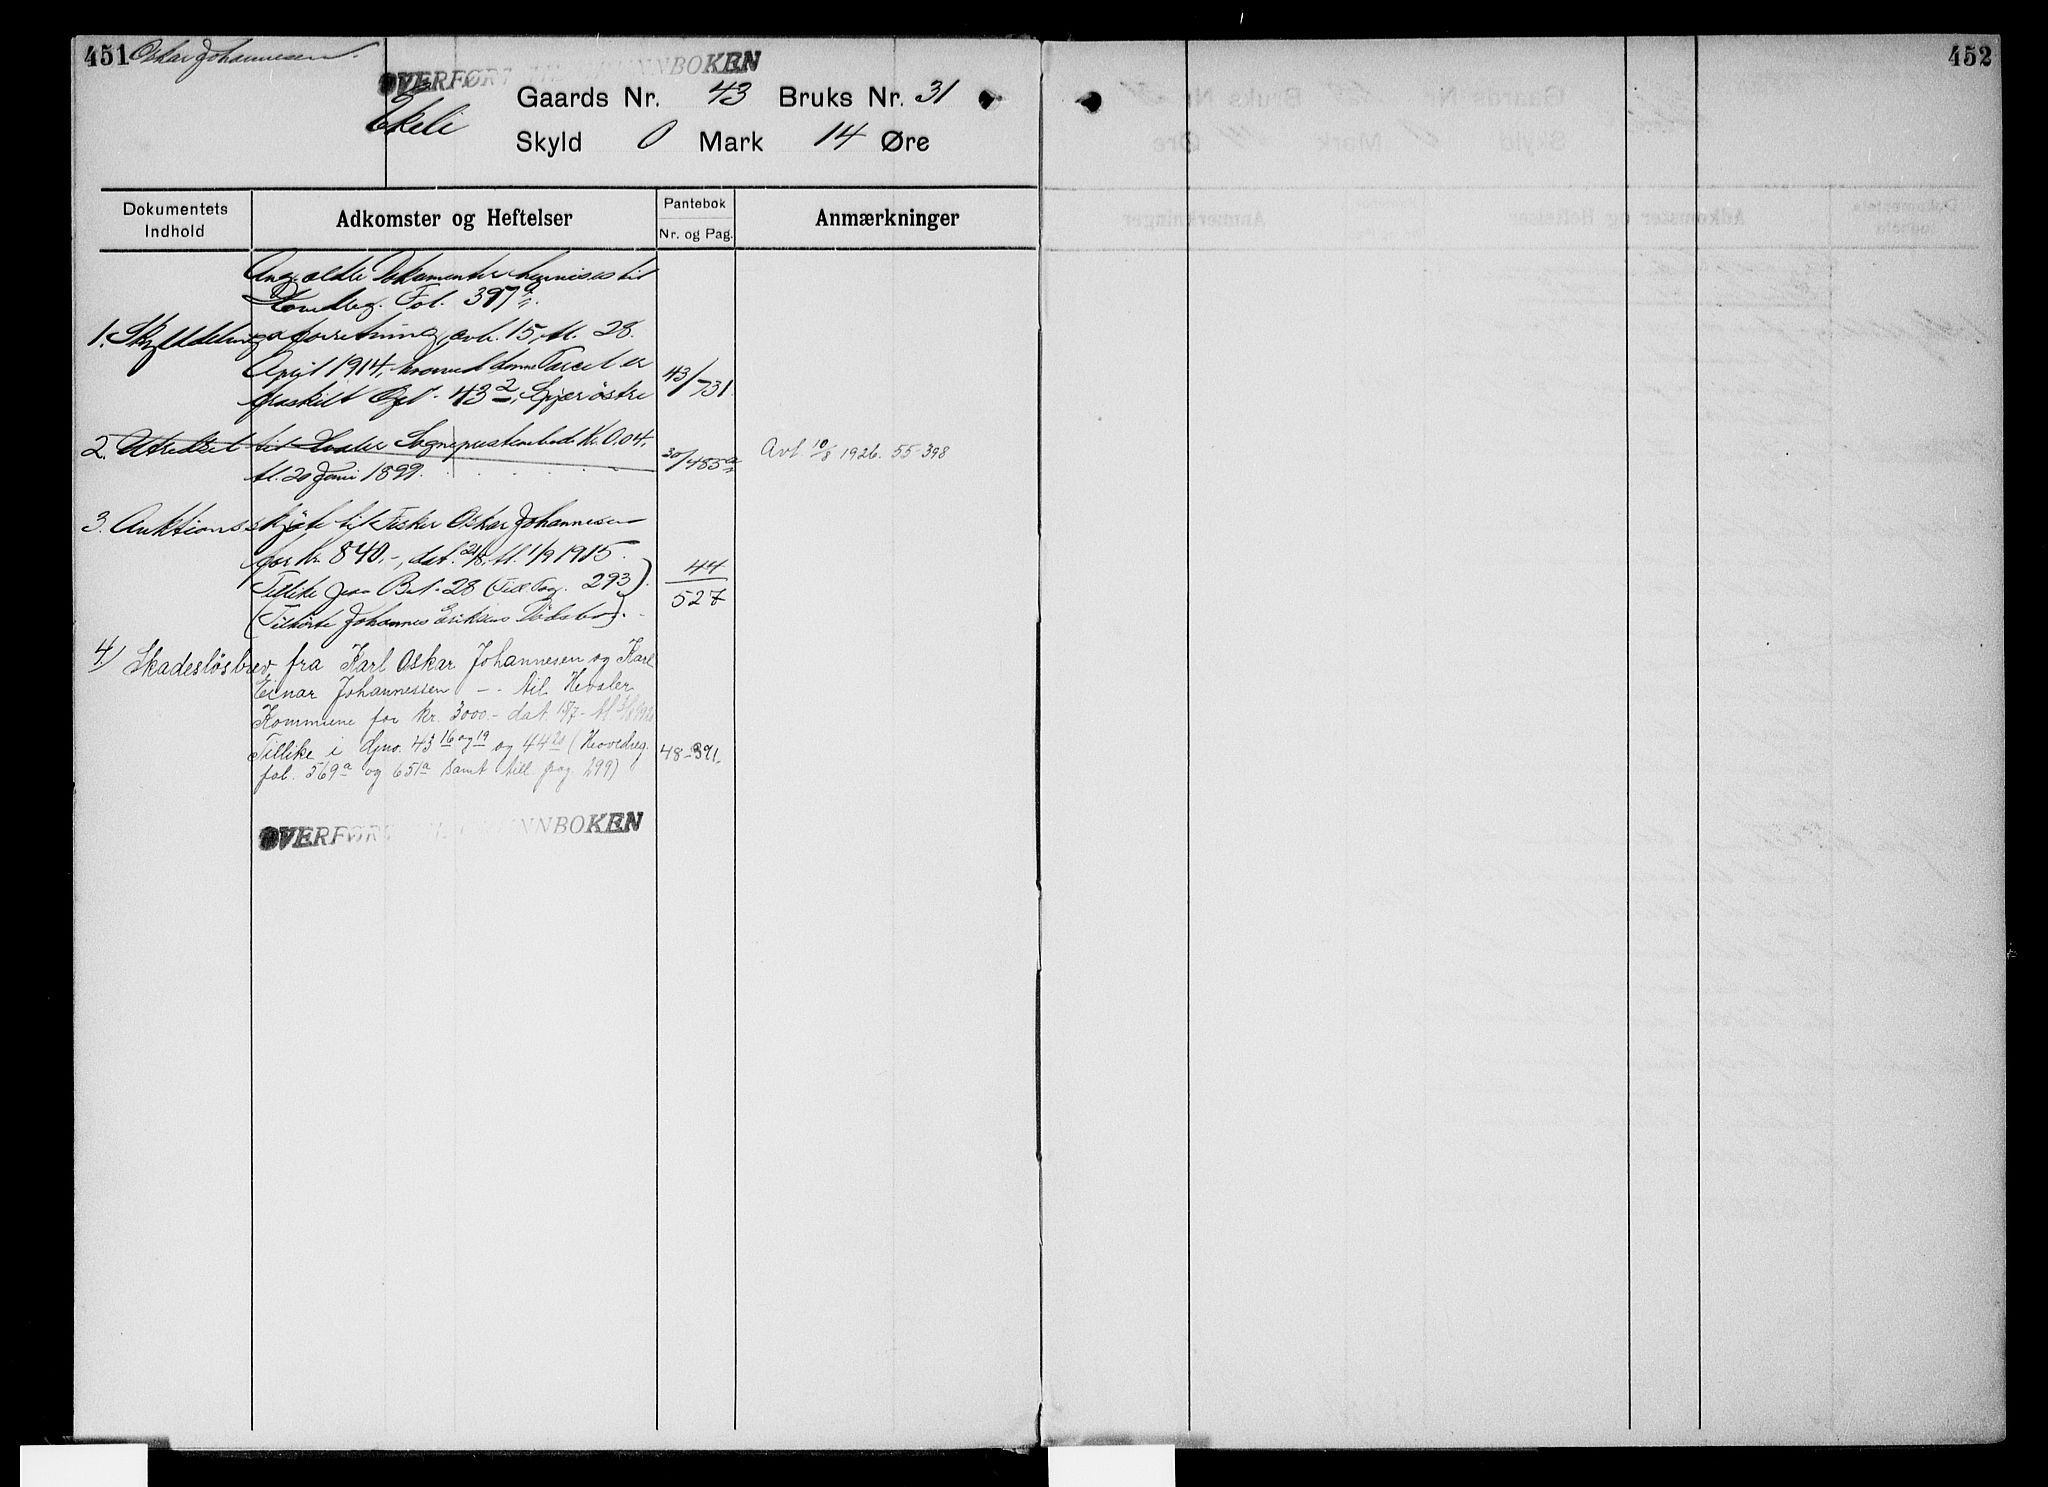 451 Oskar Johannesen. 452
OVERFØRT TIL GRUNNBOKEN
Ekeli
Gaards Nr. 43 Bruks Nr. 31
Skyld 0 Mark 14 Øre
Dokumentets Indhold
Adkomster og Heftelser
Pantebok
Nr. og Pag.
Anmærkninger
Ang. ældre Dokumenter henvises til
Hovedreg. Fol. 397a.
1. Skylddelingsforretning, avh. 15, tl. 28.
April 1914, hvorved denne Parcel er
fraskilt Gjl. 43 2, Spjær østre 43/731
2. Utredsel til Hvaler Sogneprestembede Kr. 0.04,
tl. 20 Juni 1899. 30/455a Avl. 10/8 1926. 55-398
3. Auktionsskjøte til Fisker Oskar Johannesen
for Kr. 840.-, dat. 21/8, tl. 1/9 1915.
Tillike paa Bnr. 28 (Till. Pag. 293).
(Tilhørte Johannes Eriksens Dødsbo). 44/527
4) Skadesløsbrev fra Karl Oskar Johannesen og Karl
Einar Johannessen -- til Hvaler
Kommune for kr. 3000.- dat. 15/7- tl.
Tillike i Gno. 43 16 og 19 og 44 20 (Hovedreg.
fol. 569a og 651a samt till. pag. 299) 48-391.
OVERFØRT TIL GRUNNBOKEN